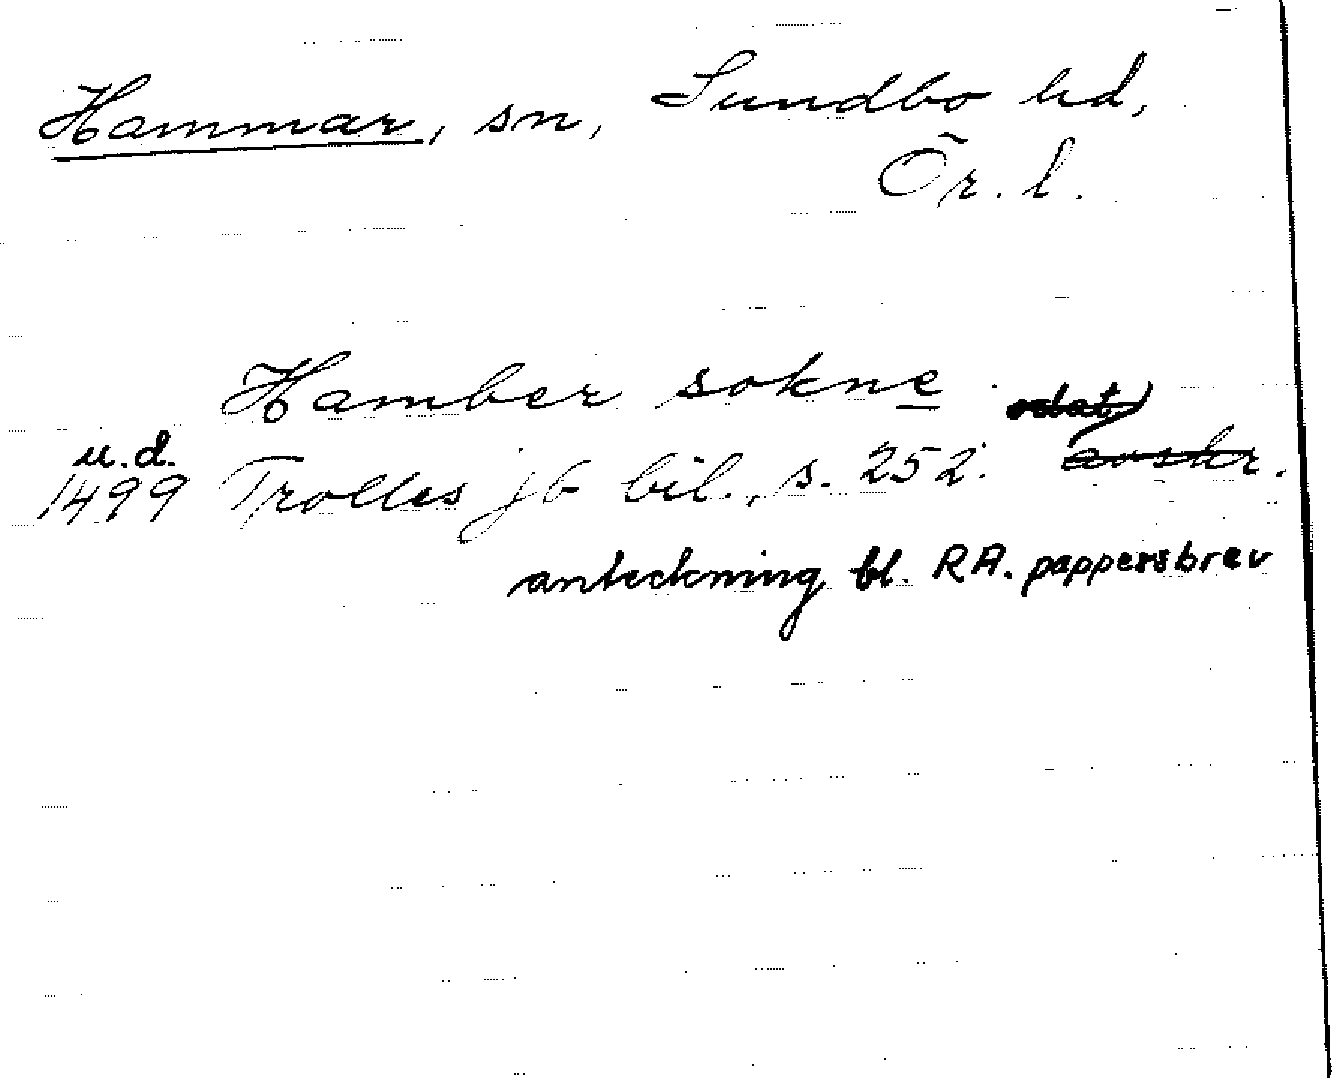 Hammar, sn, Sundbo hd,
Ör. l.
Hamber sokne odat.
u.d.
1499 Trolles jb bil., s. 252. avskr.
anteckning bl. RA. pappersbrev